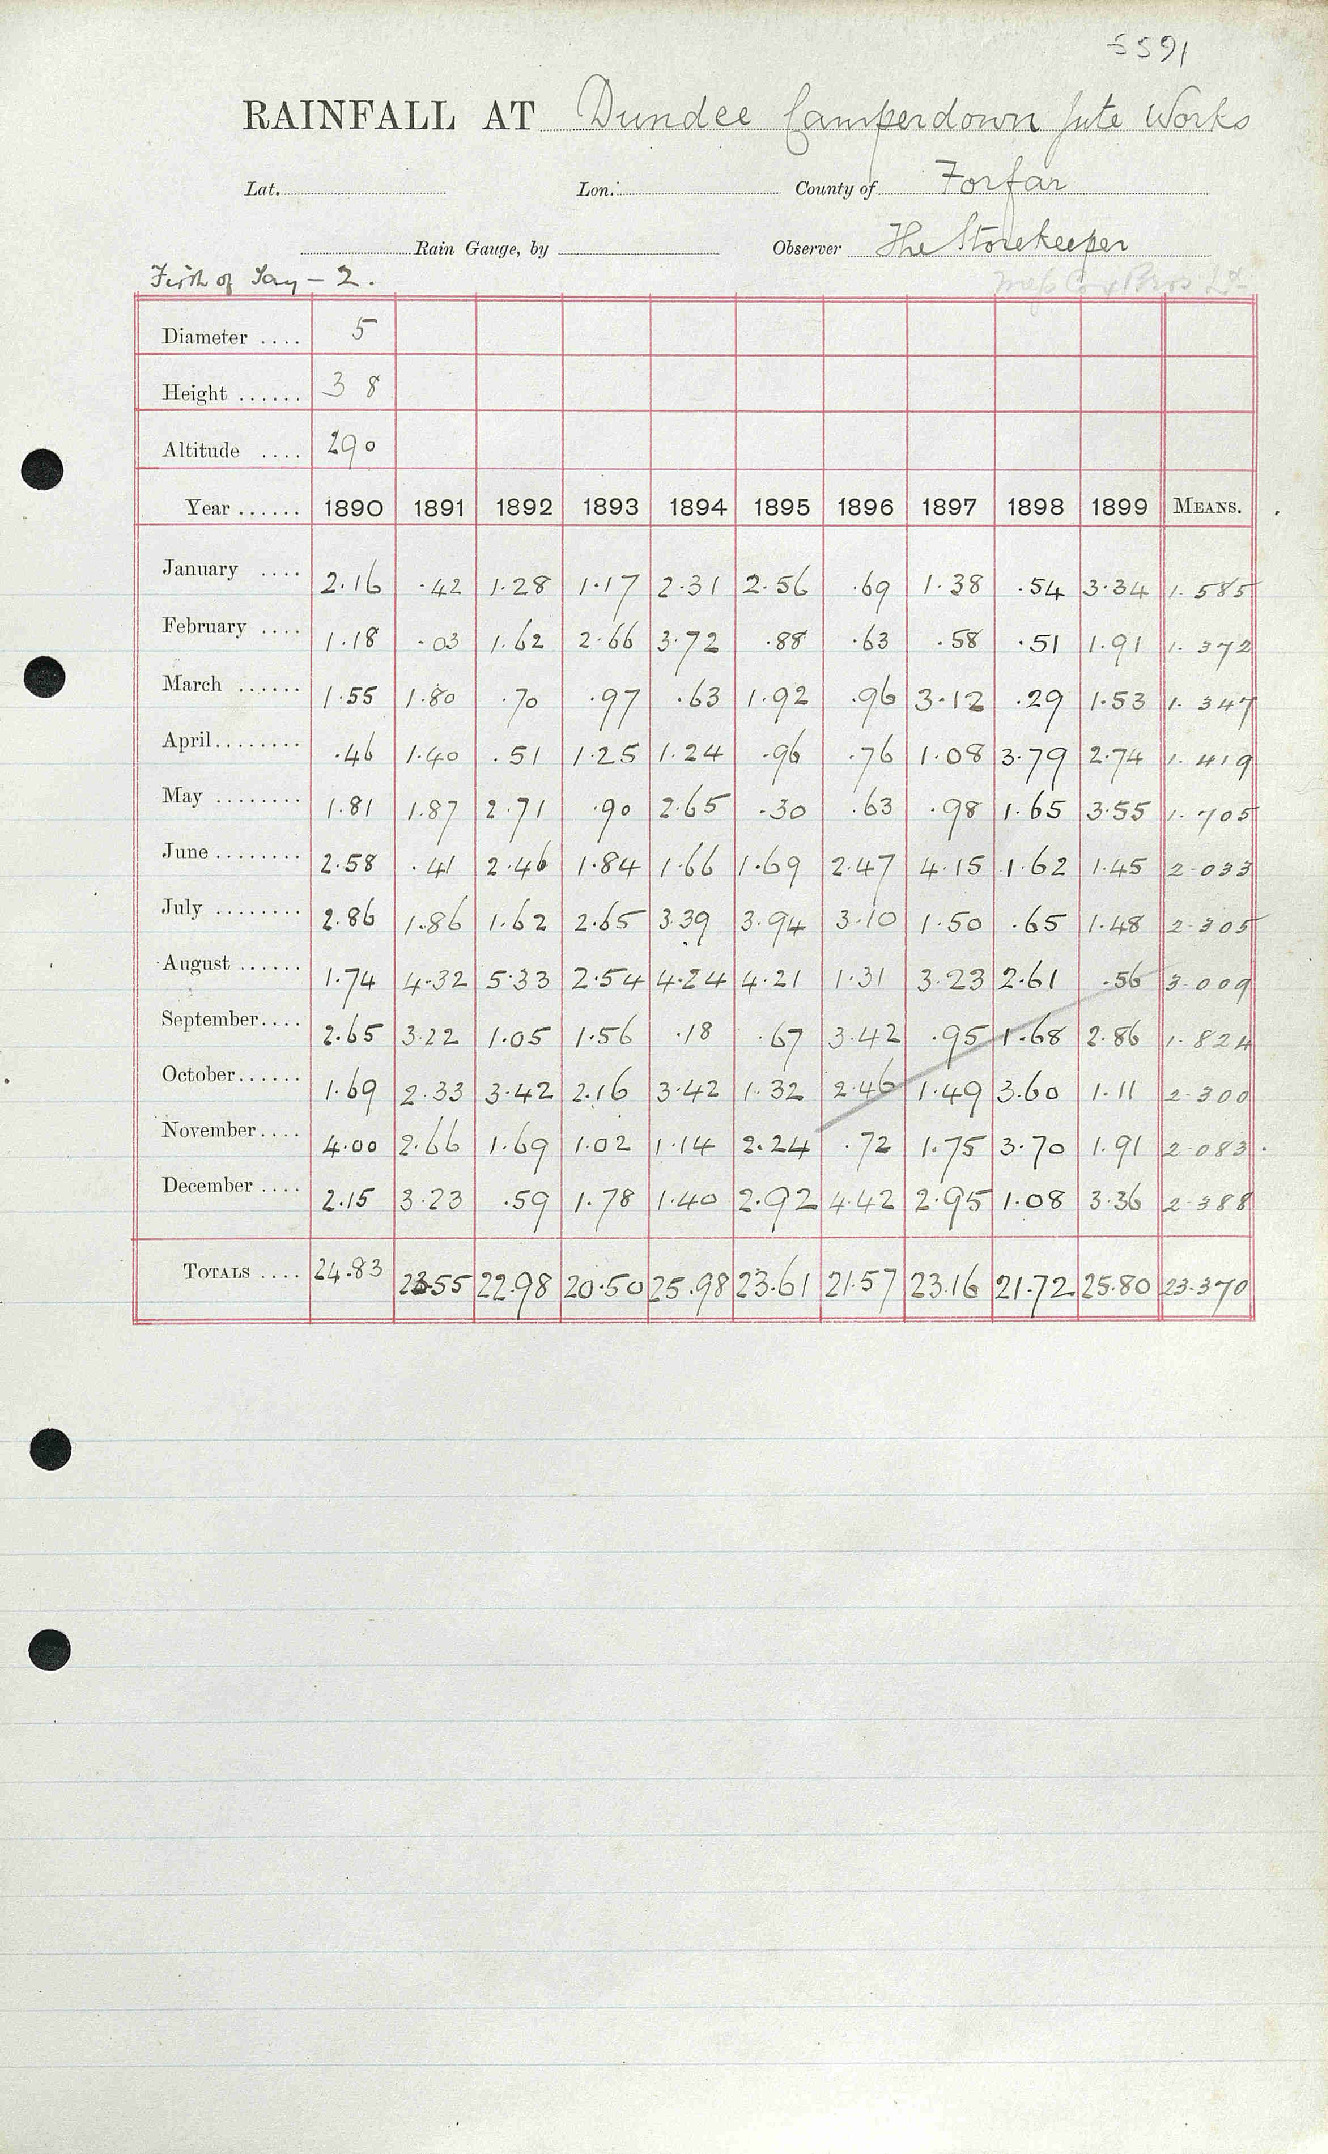 5591
RAINFALL AT Dundee Camperdown Jute Works
Lat. Lon. County of Forfar
Rain Gauge, by Observer The Storekeeper
Firth of Tay – 2. Cox Bros Ld
Diameter .... 5
Height ...... 3 8
Altitude .... 290
Year ...... 1890 1891 1892 1893 1894 1895 1896 1897 1898 1899 MEANS.
January .... 2.16 .42 1.28 1.17 2.31 2.56 .69 1.38 .54 3.34 1.585
February .... 1.18 .03 1.62 2.66 3.72 .88 .63 .58 .51 1.91 1.372
March ...... 1.55 1.80 .70 .97 .63 1.92 .96 3.12 .29 1.53 1.347
April........ .46 1.40 .51 1.25 1.24 .96 .76 1.08 3.79 2.74 1.419
May ........ 1.81 1.87 2.71 .90 2.65 .30 .63 .98 1.65 3.55 1.705
June ........ 2.58 .41 2.46 1.84 1.66 1.69 2.47 4.15 1.62 1.45 2.033
July ........ 2.86 1.86 1.62 2.65 3.39 3.94 3.10 1.50 .65 1.48 2.305
August ...... 1.74 4.32 5.33 2.54 4.24 4.21 1.31 3.23 2.61 .56 3.009
September.... 2.65 3.22 1.05 1.56 .18 .67 3.42 .95 1.68 2.86 1.824
October...... 1.69 2.33 3.42 2.16 3.42 1.32 2.46 1.49 3.60 1.11 2.300
November.... 4.00 2.66 1.69 1.02 1.14 2.24 .72 1.75 3.70 1.91 2.083
December .... 2.15 3.23 .59 1.78 1.40 2.92 4.42 2.95 1.08 3.36 2.388
TOTALS .... 24.83 23.55 22.98 20.50 25.98 23.61 21.57 23.16 21.72 25.80 23.370